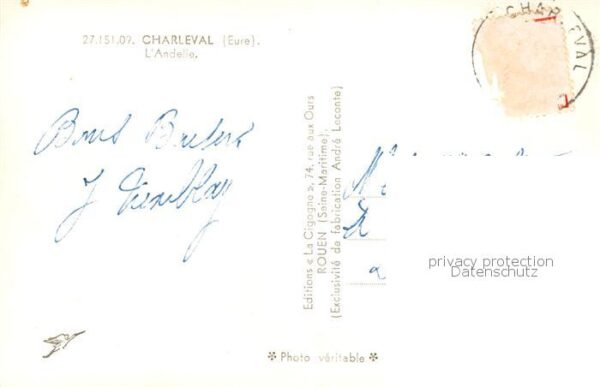 27.151.09. CHARLEVAL (Eure).
L'Andelle.
CHARLEVAL
Bons Baisers
J
Editions « La Cigogne », 74, rue aux Ours
ROUEN (Seine-Maritime).
(Exclusivité de fabrication André Leconte)
a
privacy protection
Datenschutz
✻ Photo véritable ✻